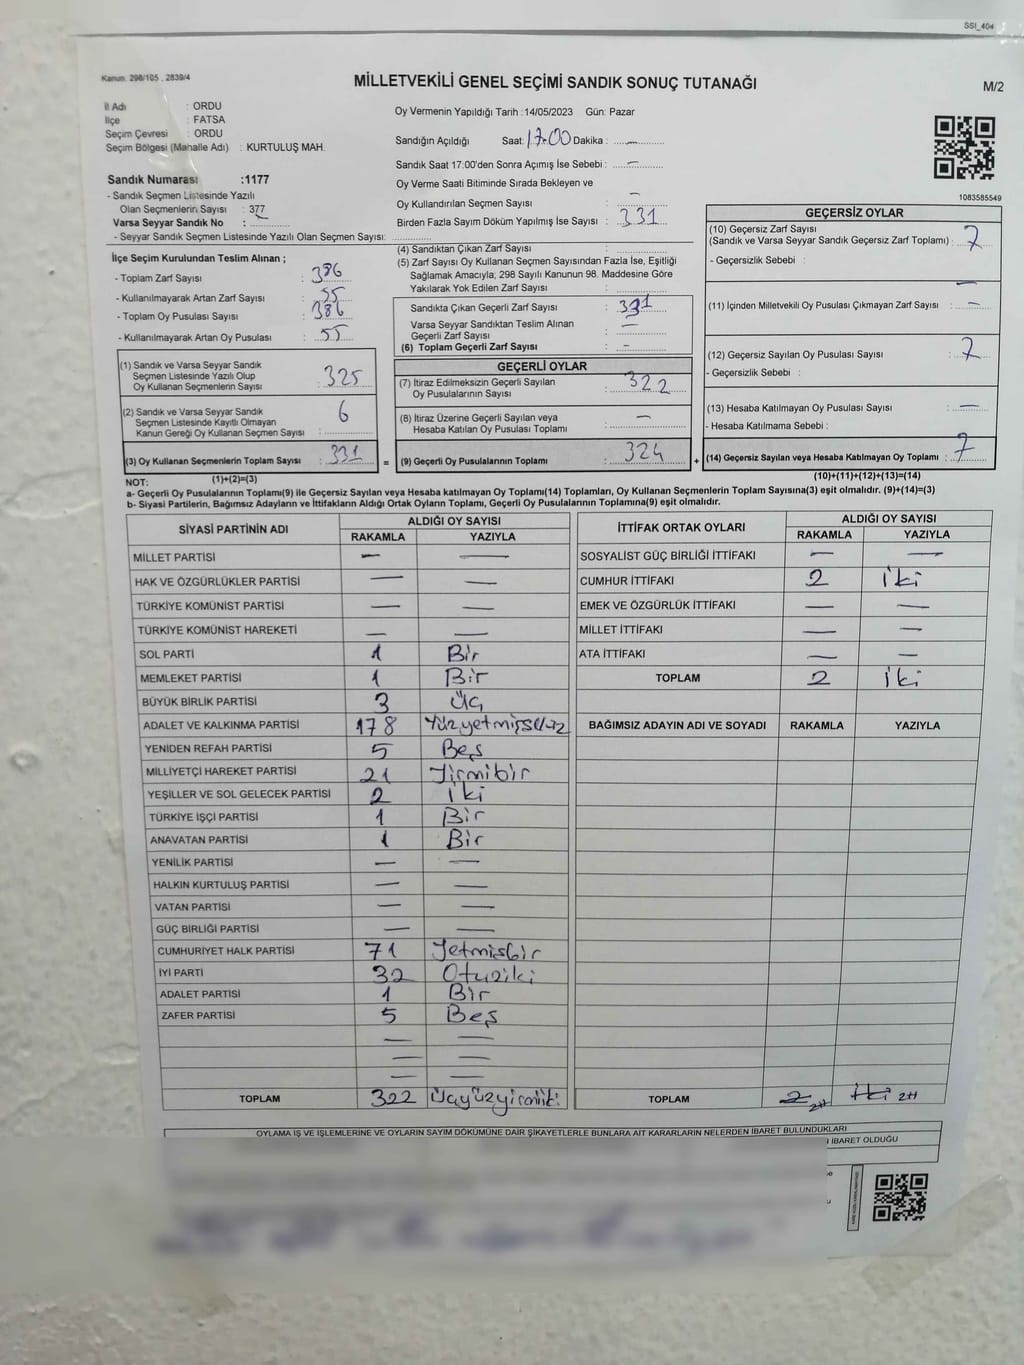 SSI_404
Kanun. 298/105 , 2839/4
MİLLETVEKİLİ GENEL SEÇİMİ SANDIK SONUÇ TUTANAĞI
M/2
İl Adı : ORDU
İlçe : FATSA
Seçim Çevresi : ORDU
Seçim Bölgesi (Mahalle Adı) : KURTULUŞ MAH.
Sandık Numarası :1177
- Sandık Seçmen Listesinde Yazılı
Olan Seçmenlerin Sayısı : 377
Varsa Seyyar Sandık No :
- Seyyar Sandık Seçmen Listesinde Yazılı Olan Seçmen Sayısı:
Oy Vermenin Yapıldığı Tarih :14/05/2023 Gün: Pazar
Sandığın Açıldığı Saat: 17:00 Dakika : —
Sandık Saat 17:00'den Sonra Açımış İse Sebebi : —
Oy Verme Saati Bitiminde Sırada Bekleyen ve
Oy Kullandırılan Seçmen Sayısı : —
Birden Fazla Sayım Döküm Yapılmış İse Sayısı : 331
1083585549
İlçe Seçim Kurulundan Teslim Alınan ;
- Toplam Zarf Sayısı : 386
- Kullanılmayarak Artan Zarf Sayısı : 55
- Toplam Oy Pusulası Sayısı : 386
- Kullanılmayarak Artan Oy Pusulası : 55
(1) Sandık ve Varsa Seyyar Sandık
Seçmen Listesinde Yazılı Olup
Oy Kullanan Seçmenlerin Sayısı : 325
(2) Sandık ve Varsa Seyyar Sandık
Seçmen Listesinde Kayıtlı Olmayan
Kanun Gereği Oy Kullanan Seçmen Sayısı : 6
(3) Oy Kullanan Seçmenlerin Toplam Sayısı : 331
(1)+(2)=(3)
(4) Sandıktan Çıkan Zarf Sayısı :
(5) Zarf Sayısı Oy Kullanan Seçmen Sayısından Fazla İse, Eşitliği
Sağlamak Amacıyla, 298 Sayılı Kanunun 98. Maddesine Göre
Yakılarak Yok Edilen Zarf Sayısı :
Sandıkta Çıkan Geçerli Zarf Sayısı : 331
Varsa Seyyar Sandıktan Teslim Alınan
Geçerli Zarf Sayısı : —
(6) Toplam Geçerli Zarf Sayısı : —
GEÇERLİ OYLAR
(7) İtiraz Edilmeksizin Geçerli Sayılan
Oy Pusulalarının Sayısı : 322
(8) İtiraz Üzerine Geçerli Sayılan veya
Hesaba Katılan Oy Pusulası Toplamı : —
= (9) Geçerli Oy Pusulalarının Toplamı : 324 +
GEÇERSİZ OYLAR
(10) Geçersiz Zarf Sayısı
(Sandık ve Varsa Seyyar Sandık Geçersiz Zarf Toplamı) : 7
- Geçersizlik Sebebi :
(11) İçinden Milletvekili Oy Pusulası Çıkmayan Zarf Sayısı : —
(12) Geçersiz Sayılan Oy Pusulası Sayısı : 7
- Geçersizlik Sebebi :
(13) Hesaba Katılmayan Oy Pusulası Sayısı : —
- Hesaba Katılmama Sebebi :
(14) Geçersiz Sayılan veya Hesaba Katılmayan Oy Toplamı : 7
(10)+(11)+(12)+(13)=(14)
NOT:
a- Geçerli Oy Pusulalarının Toplamı(9) ile Geçersiz Sayılan veya Hesaba katılmayan Oy Toplamı(14) Toplamları, Oy Kullanan Seçmenlerin Toplam Sayısına(3) eşit olmalıdır. (9)+(14)=(3)
b- Siyasi Partilerin, Bağımsız Adayların ve İttifakların Aldığı Ortak Oyların Toplamı, Geçerli Oy Pusulalarının Toplamına(9) eşit olmalıdır.
SİYASİ PARTİNİN ADI ALDIĞI OY SAYISI
RAKAMLA YAZIYLA
MİLLET PARTİSİ — —
HAK VE ÖZGÜRLÜKLER PARTİSİ — —
TÜRKİYE KOMÜNİST PARTİSİ — —
TÜRKİYE KOMÜNİST HAREKETİ — —
SOL PARTİ 1 Bir
MEMLEKET PARTİSİ 1 Bir
BÜYÜK BİRLİK PARTİSİ 3 Üç
ADALET VE KALKINMA PARTİSİ 178 Yüzyetmişsekiz
YENİDEN REFAH PARTİSİ 5 Beş
MİLLİYETÇİ HAREKET PARTİSİ 21 Yirmibir
YEŞİLLER VE SOL GELECEK PARTİSİ 2 İki
TÜRKİYE İŞÇİ PARTİSİ 1 Bir
ANAVATAN PARTİSİ 1 Bir
YENİLİK PARTİSİ — —
HALKIN KURTULUŞ PARTİSİ — —
VATAN PARTİSİ — —
GÜÇ BİRLİĞİ PARTİSİ — —
CUMHURİYET HALK PARTİSİ 71 Yetmişbir
İYİ PARTİ 32 Otuziki
ADALET PARTİSİ 1 Bir
ZAFER PARTİSİ 5 Beş
— —
— —
— —
TOPLAM 322 Üçyüzyirmiiki
İTTİFAK ORTAK OYLARI ALDIĞI OY SAYISI
RAKAMLA YAZIYLA
SOSYALİST GÜÇ BİRLİĞİ İTTİFAKI — —
CUMHUR İTTİFAKI 2 İki
EMEK VE ÖZGÜRLÜK İTTİFAKI — —
MİLLET İTTİFAKI — —
ATA İTTİFAKI — —
TOPLAM 2 İki
BAĞIMSIZ ADAYIN ADI VE SOYADI RAKAMLA YAZIYLA
TOPLAM 2 İki
OYLAMA İŞ VE İŞLEMLERİNE VE OYLARIN SAYIM DÖKÜMÜNE DAİR ŞİKAYETLERLE BUNLARA AİT KARARLARIN NELERDEN İBARET BULUNDUKLARI
İBARET OLDUĞU